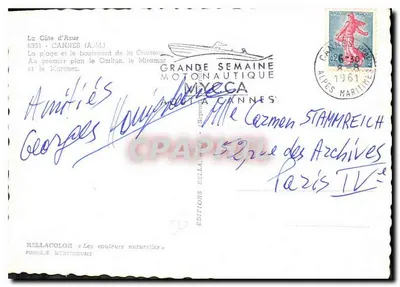 La Côte d'Azur
CANNES (A.-M.)
La plage et le boulevard de la Croisette
Au premier plan le Carlton, le Miramar
et le Martinez.
GRANDE SEMAINE
MOTONAUTIQUE
MYCCA
A CANNES
6-30
1961
ALPES MARITIMES
Amitiés
Georges
Mlle Carmen STAMMREICH
52, rue des Archives
Paris IVe
EDITIONS
BELLACOLOR « Les couleurs naturelles »